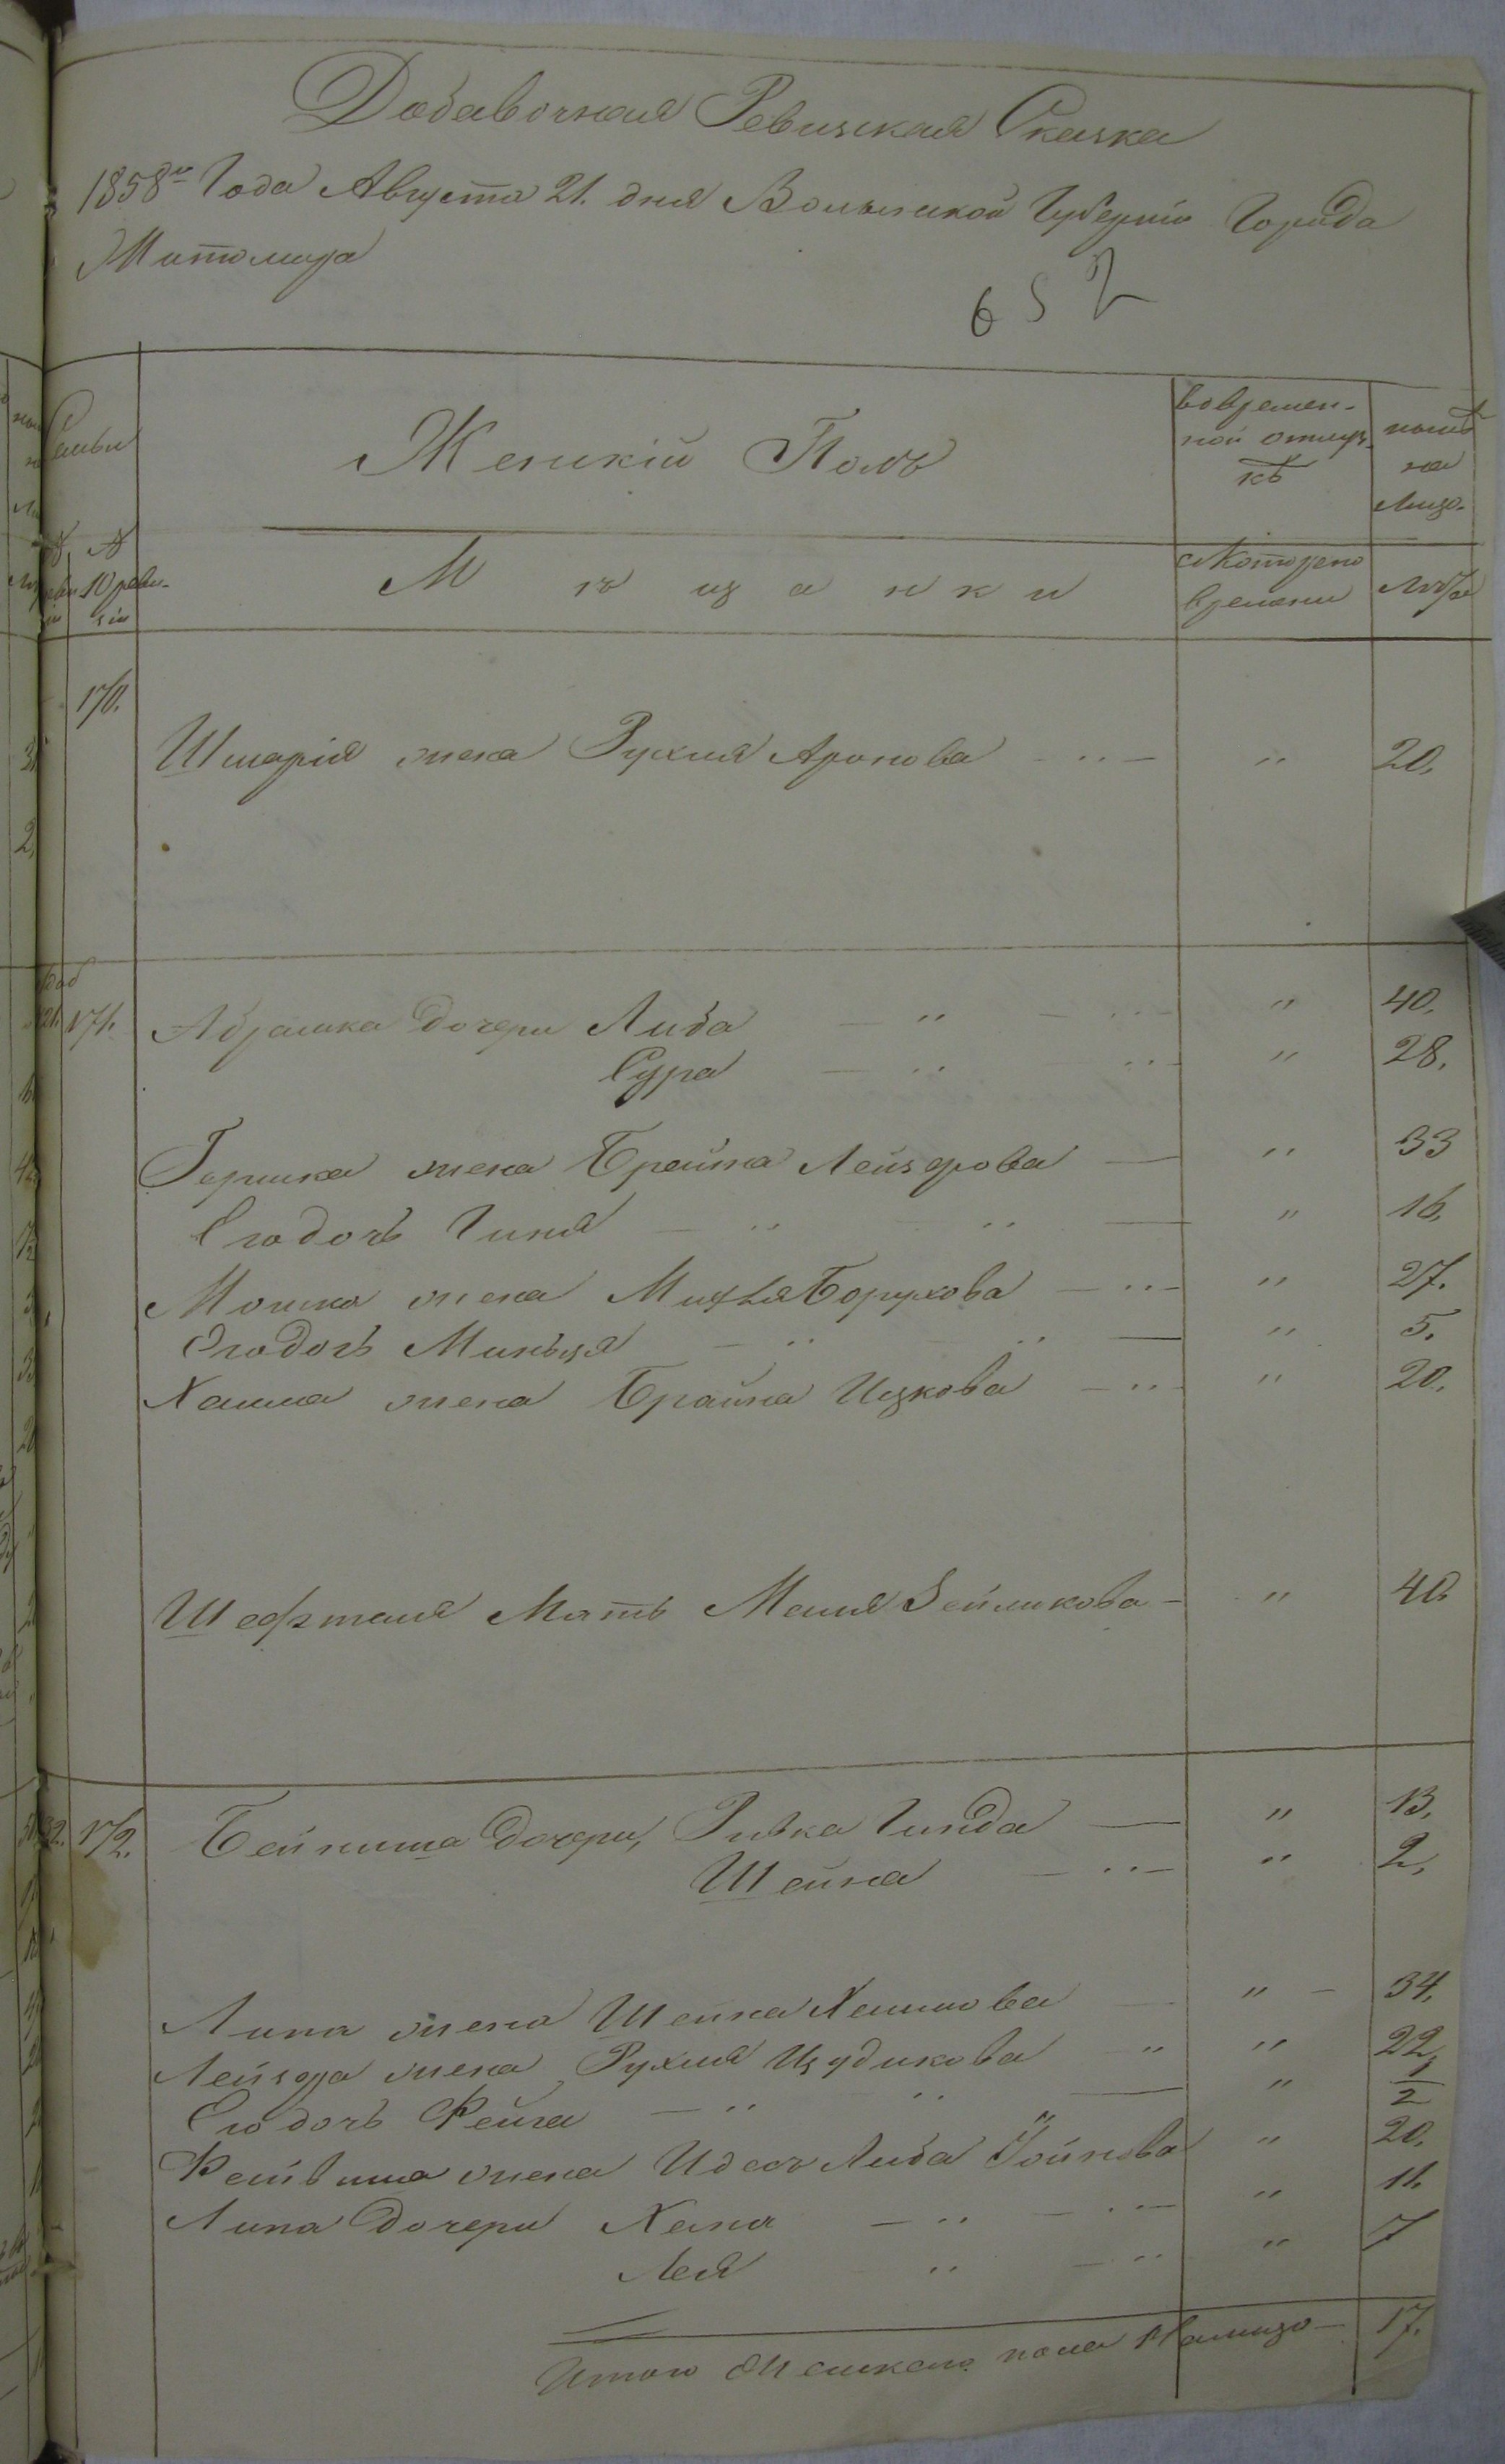 Добавочная Ревизская Сказка
1858го Года Августа 21. дня Волынской Губерніи Города
Житомира
652
Семьи
Женскій Полъ
вовремен-
ной отлуч-
кѣ
нынѣ
на
лицо.
№ №
10 реви-
зіи
Мѣщанки
съкотораго
времени
лѣта
170.
Шмарія жена Рухля Аронова " 20.
доб
21. 171. Абрамка дочери Либа " 40.
Сура " 28.
Гершка жена Брайна Лейзерова " 33
Егодочь Гиня " 16.
Мошка жена Борухова " 27.
Егодочь Миньця " 5.
Хаима жена Брайна Ицкова " 20.
Шефтеля Мать Маля Зейликова " 40.
32. 172. Бейниша дочери, Ривка Гинда " 13.
Шейна " 2,
Липа жена Шейна Хаимова " 34.
Лейзера жена Рухля Изудикова " 22,
Егодочь Фейга " 1/2
Фейвиша жена Идесъ Либа Йойнова " 20.
Липа дочери Хана " 11.
Лея " 7
Итого Женскаго пола Налицо 17.